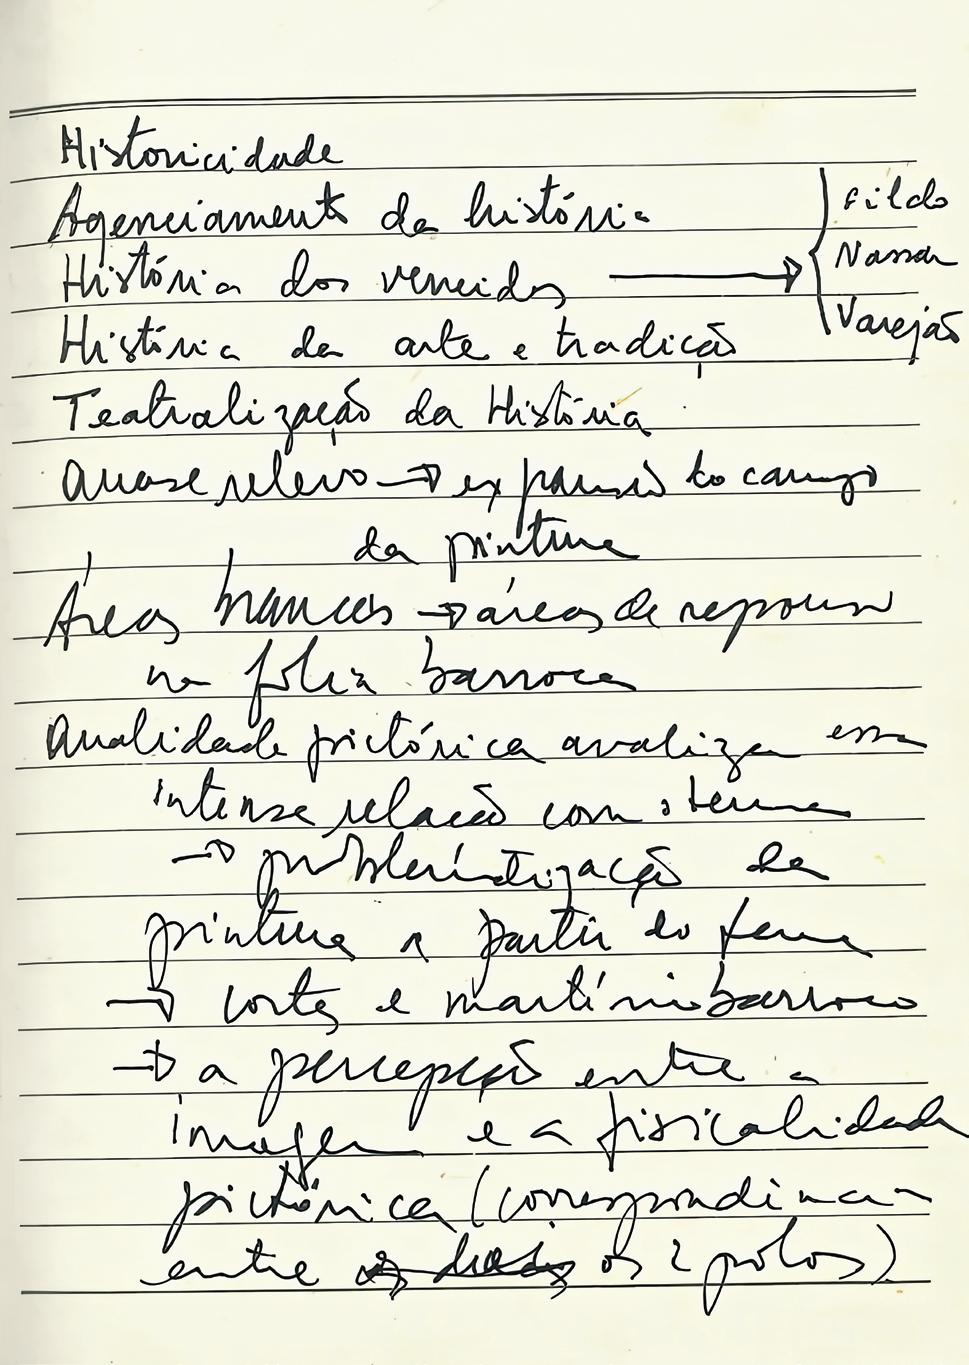 Historicidade
Agenciamento da história
História dos vencidos → Fildo
Nassar
Varejão
História da arte e tradição
Teatralização da História
Quase relevo → expansão do campo
da pintura
Áreas brancas → áreas de repouso
na folia barroca
Qualidade pictórica avaliza essa
intensa relação com o tema
→ problematização da
pintura a partir do tema
→ cortes e martírio barroco
→ a percepção entre a
imagem e a fisicalidade
pictórica (correspondência
entre os 2 polos)